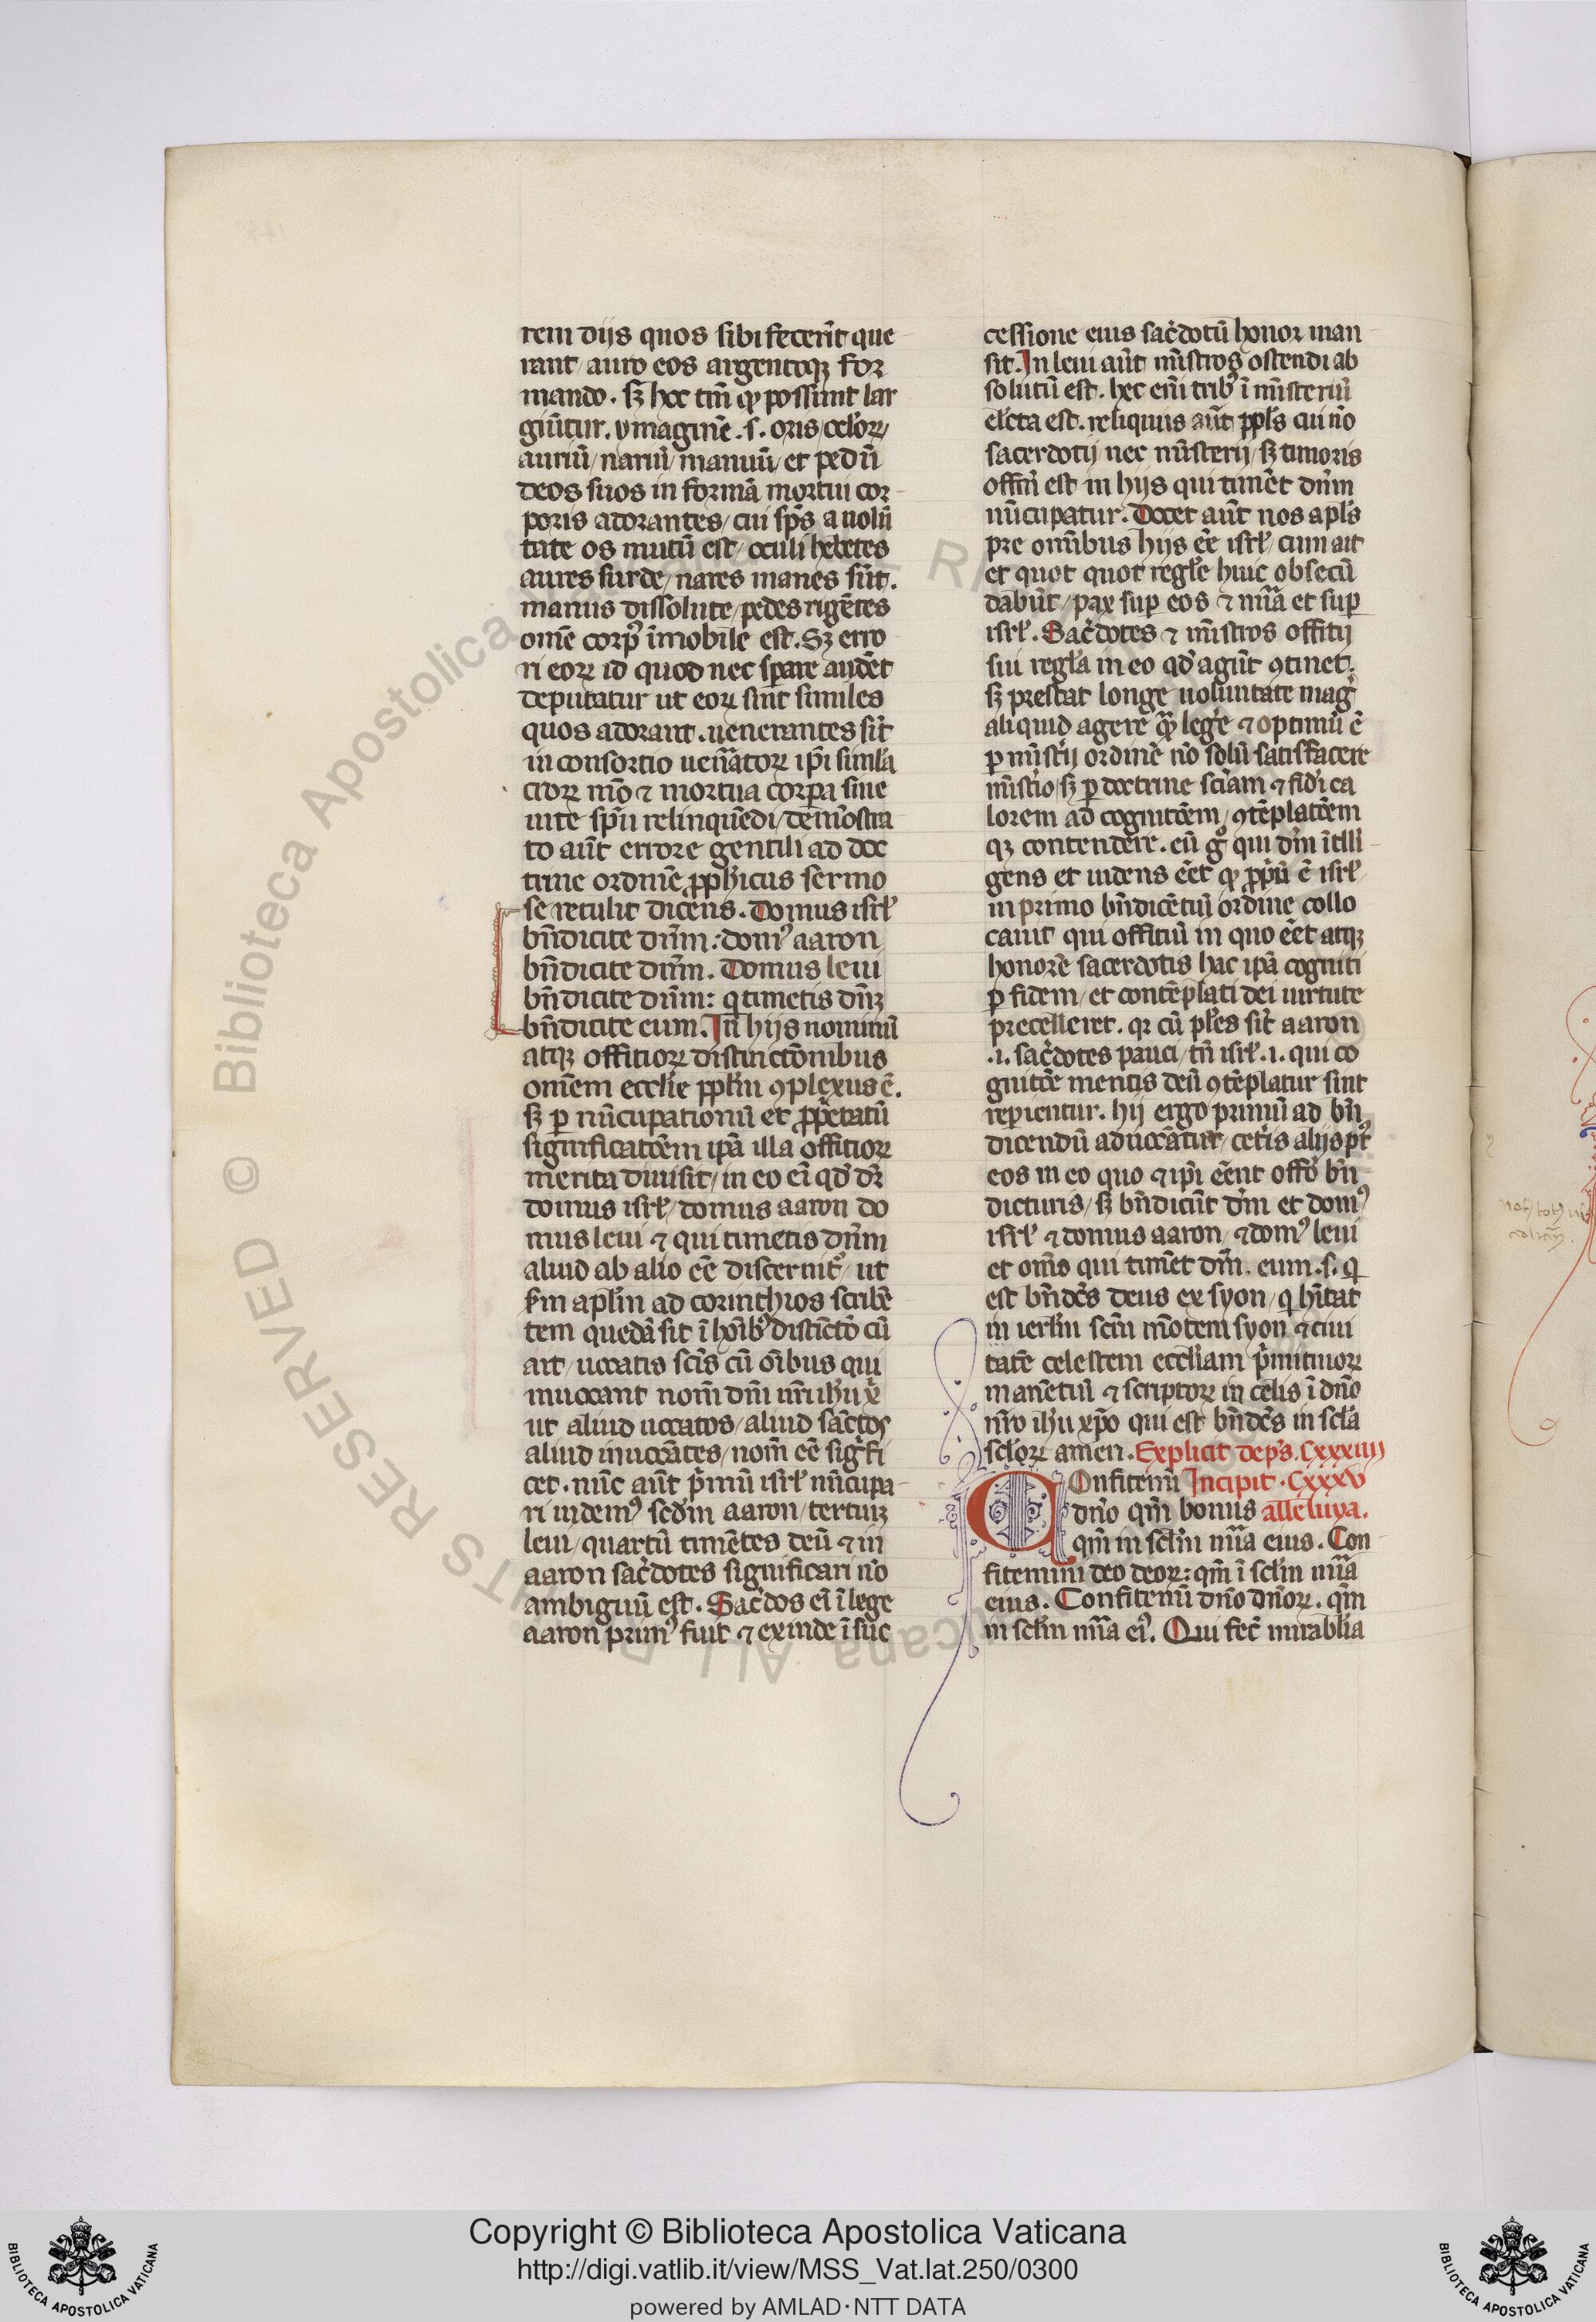 rem dijs quos sibi fecer̄t que
rant / auro eos argentoqꝫ for
mando . sꝫ hoc tm̄ qͥ possunt lar
giūtur . ymaginē . s . oris / oclorꝝ /
auriū / nariū / manuū / et pedū
deos suos in formā mortui cor
poris adorantes / cui sp̄s a uolū
tate os mutū est / oculi hebetes
aures surde / nares inanes sūt .
manus dissolute / pedes rigētes
omē corpꝰ īmobile est . Sꝫ erro
ri eorꝝ id quod nec sperare audēt
deputatur ut eorꝝ sint similes
quos adorant . uenerantes sīt
in consortio uen̄atorꝝ ip̄i simla
crorꝝ mō ⁊ mortua corpa sine
uite spū relinquēdi / demōstra
to aūt errore gentili ad doc
trine ordinē ꝓpħicus sermo
se retulit dicens . Domus isrł
bn̄dicite dn̄m : domꝰ aaron
bn̄dicite dn̄m . Domus leui
bn̄dicite dn̄m : q timetis dn̄ꝫ
bn̄dicite eum . In hijs nominū
atqꝫ offitiorꝝ distinctōnibus
omēm eccłie ppłm ꝯplexus ē .
sꝫ ꝑ nūcupationū et ꝓp̄etatū
significatōem ip̄a illa offitiorꝝ
merita diuisit / in eo eī qd̓ dr̄
domus isrł / domus aaron do
mus leui ⁊ qui timetis dn̄m
aliud ab alio eē discernitᷣ / ut
scd̄m apłm ad corinthios scribē
tem quedā sit ī hoībꝰ distīctō cū
ait / uocatis scīs cū oībus qui
inuocant nom̄ dn̄i nr̄i ihu xͥ
ut aliud uocatos / aliud sāctos
aliud inuocātes / nom̄ eē sigͥfi
cet . nūc aūt pͥmū isrł nūcupa
ri uidemꝰ scd̓m aaron / tertiuꝫ
leui / quartū timētes deū ⁊ in
aaron sac̓dotes significari nō
ambiguū est . Sac̓dos eī ī lege
aaron primꝰ fuit ⁊ exinde ī suc
cessione eius sac̓dotū honor man
sit . In leui aūt mīstros ostendi ab
solutū est . hec eīm tribꝰ ī mīsteriū
elc̄ta est . reliquus aūt ppłs cui nō
sacerdotij nec mīsterij / sꝫ timoris
offm̄ est in hijs qui timēt dn̄m
nūcupatur . Docet aūt nos apłs
pre omībus hijs eē isrł / cum ait
et quot quot regłe huic obsecū
dabūt / pax sup eos ⁊ mīa et sup
isrł . Sac̓dotes ⁊ mīstros offitij
sui regła in eo qd̓ agūt ꝯtinet .
sꝫ prestat longe uoluntate magͥ
aliquid agere qͣꝫ lege ⁊ optimū ē
ꝑ mīst̓ij ordinē nō solū satisfacere
mīst̓io / sꝫ ꝑ doctrine sc̄iam ⁊ fid̓i ca
lorem ad cognitōem / ꝯtēplatōem
qꝫ contendere . eū gͦ qui dn̄m ītlli
gens et uidens eēt qͥ ꝓpͥū ē isrł
in primo bn̄dicētiū ordine collo
cauit qui offitiū in quo eēt atqꝫ
honorē sacerdotis hac ip̄a cogniti
ꝑ fidem / et contēplati dei uirtute
precelleret . qꝛ cū płes sīt aaron
.i. sac̓dotes pauci / tn̄ isrł . i . qui co
gnitōe mentis deū ꝯtēplatur sint
reperientur . hij ergo primū ad bn̄
dicendū aduocātur / cet̓is alijs pt̓
eos in eo quo ⁊ ip̄i eēnt offō bn̄
dicturis / sꝫ bn̄dicūt dn̄m et domꝰ
isrł ⁊ domus aaron / ⁊ domꝰ leui
et om̄s qui timēt dn̄m . eum . s . q
est bn̄dc̄s deus ex syon / q hītat
in ierłm sc̄m mōtem syon ⁊ ciui
tatē celestem eccłiam pͥmitiuorꝝ
manētiū ⁊ scriptorꝝ in celis ī dn̄o
nr̄o ihu xp̄o qui est bn̄dc̄s in sclā
sclorꝝ amen . Explicit de ps . Cxxxiiij
Confitemī Incipit . Cxxxv
dn̄o qm̄ bonus alleluya .
qm̄ in sclm̄ mīa eius . Con
fitemini deo deorꝝ : qm̄ ī sclm̄ mīa
eius . Confitemī dn̄o dn̄orꝝ . qm̄
in sclm̄ mīa eiꝰ . Qui fec̄ mirabłia
Copyright © Biblioteca Apostolica Vaticana
http://digi.vatlib.it/view/MSS_Vat.lat.250/0300
powered by AMLAD·NTT DATA
BIBLIOTECA APOSTOLICA VATICANA
BIBLIOTECA APOSTOLICA VATICANA